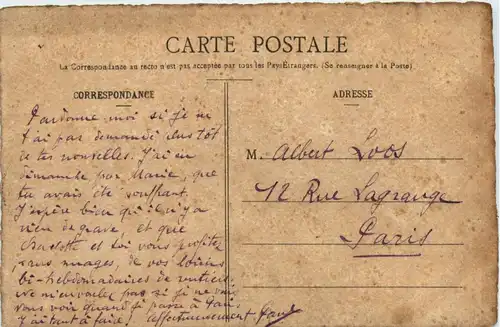 CARTE POSTALE
La Correspondance au recto n'est pas acceptée par tous les Pays Etrangers. (Se renseigner à la Poste)
CORRESPONDANCE
Pardonne moi si je ne
t'ai pas demandé plus tôt
de tes nouvelles. J'ai su
dimanche par Marie, que
tu avais été souffrant.
J'espère bien qu'il n'y a
rien de grave, et que
Charlotte et toi vous profitez
sans nuages, de vos loisirs
bi-hebdomadaires de rentiers.
Ne m'envoyez pas si je ne vais
vous voir quand je passe à Paris
J'ai tant à faire! affectueusement Paul
ADRESSE
M. Albert Loos
12 Rue Lagrange
Paris